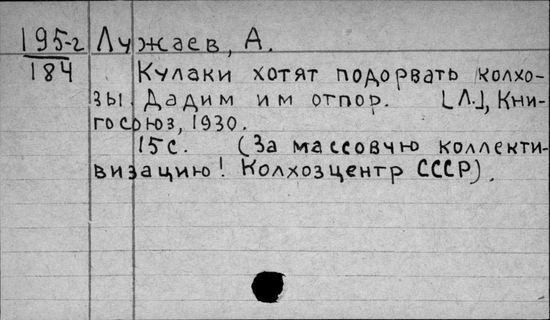 195-2 Лужаев, А.
184 Кулаки хотят подорвать колхо-
зы. Дадим им отпор. [Л.], Кни-
госоюз, 1930.
15с. (За массовую коллекти-
визацию! Колхозцентр СССР).